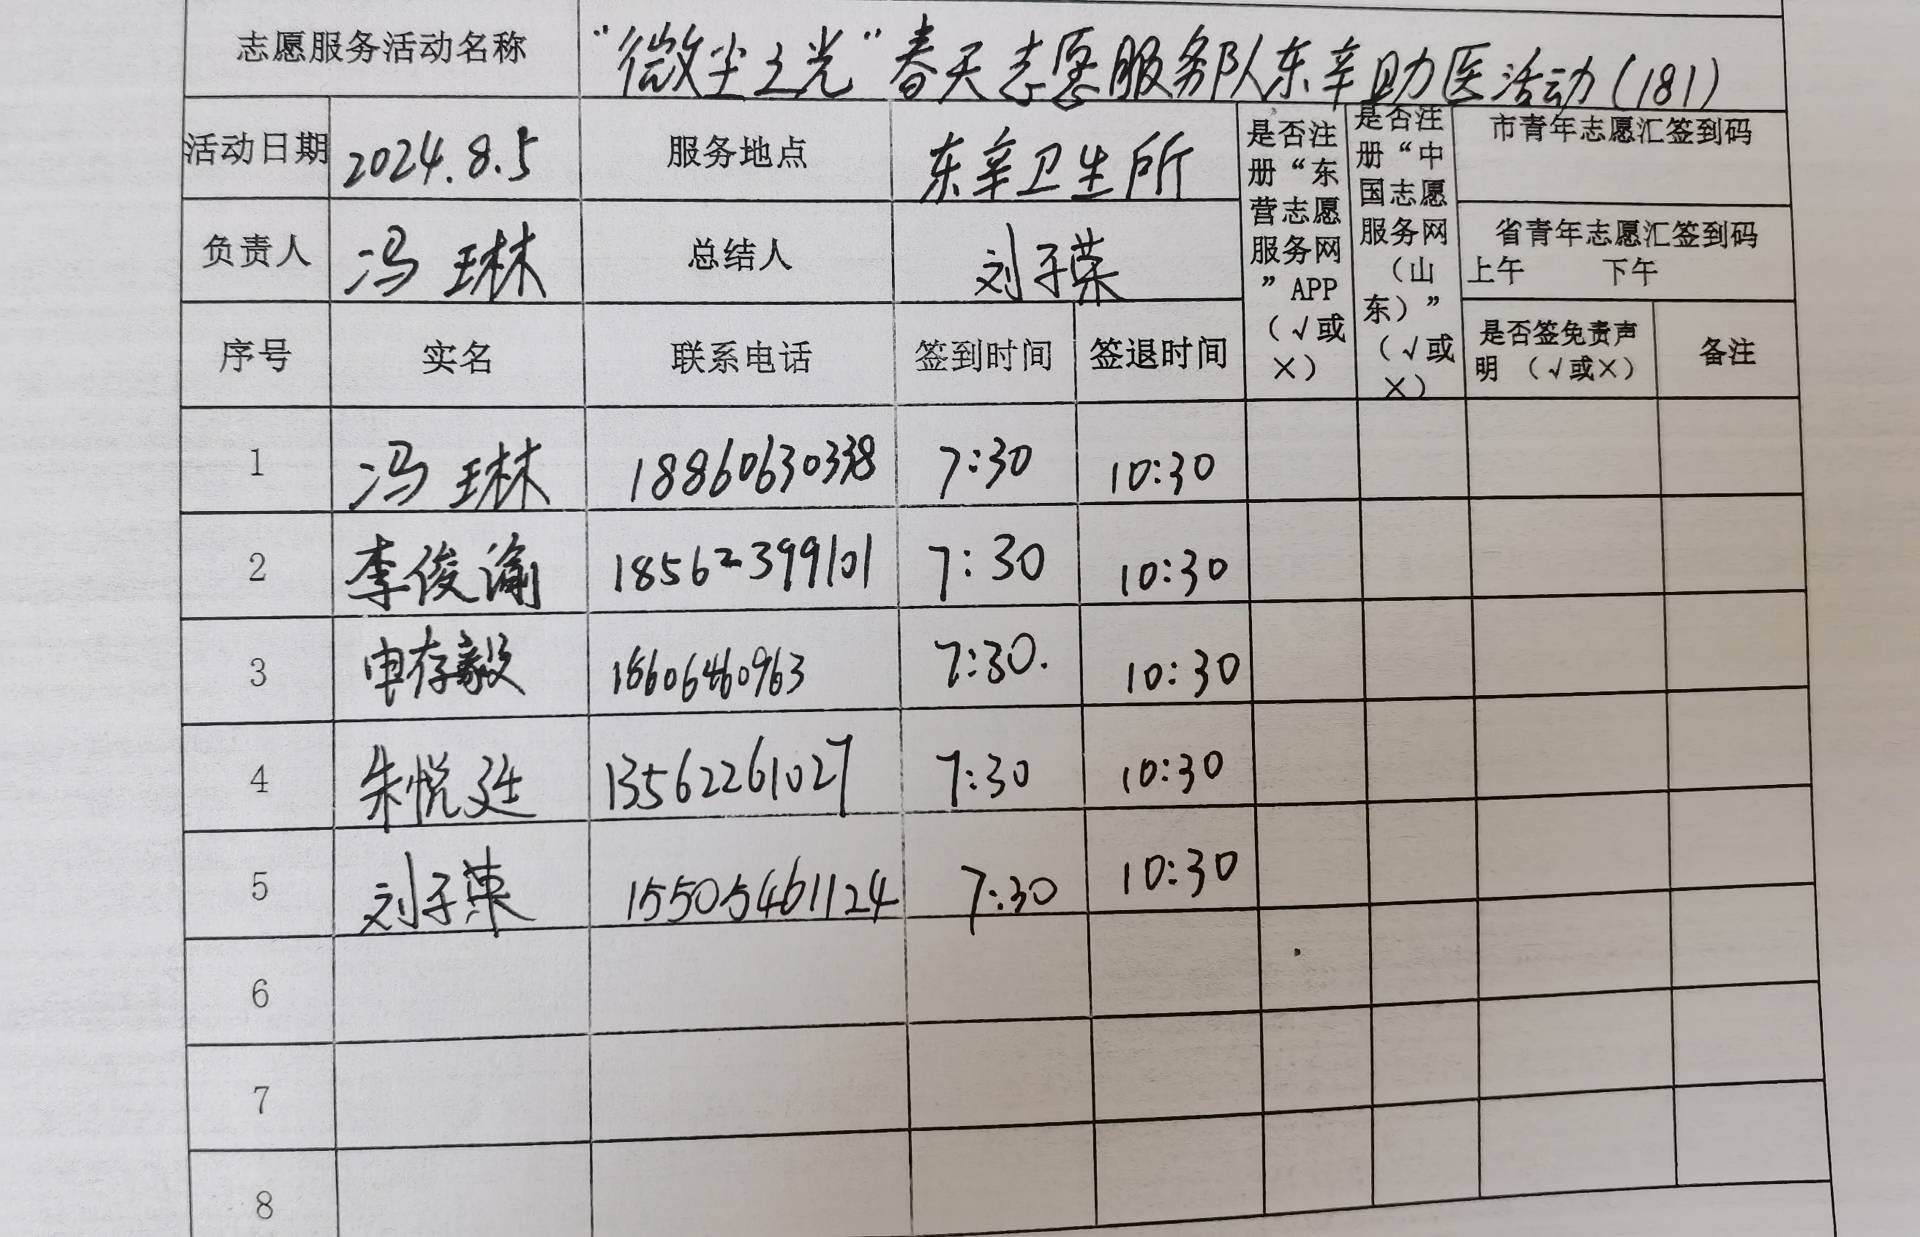 志愿服务活动名称 “微尘之光”春天志愿服务队东辛助医活动(181)
活动日期 2024.8.5 服务地点 东辛卫生所
是否注册“东营志愿服务网”APP（√或×）
是否注册“中国志愿服务网（山东）”（√或×）
市青年志愿汇签到码
负责人 冯琳 总结人 刘子荣
省青年志愿汇签到码
上午 下午
序号 实名 联系电话 签到时间 签退时间 是否签免责声明 （√或×） 备注
1 冯琳 18860630338 7:30 10:30
2 李俊渝 18562399101 7:30 10:30
3 申存毅 7:30. 10:30
4 朱悦廷 13562261027 7:30 10:30
5 刘子荣 15505461124 7:30 10:30
6
7
8